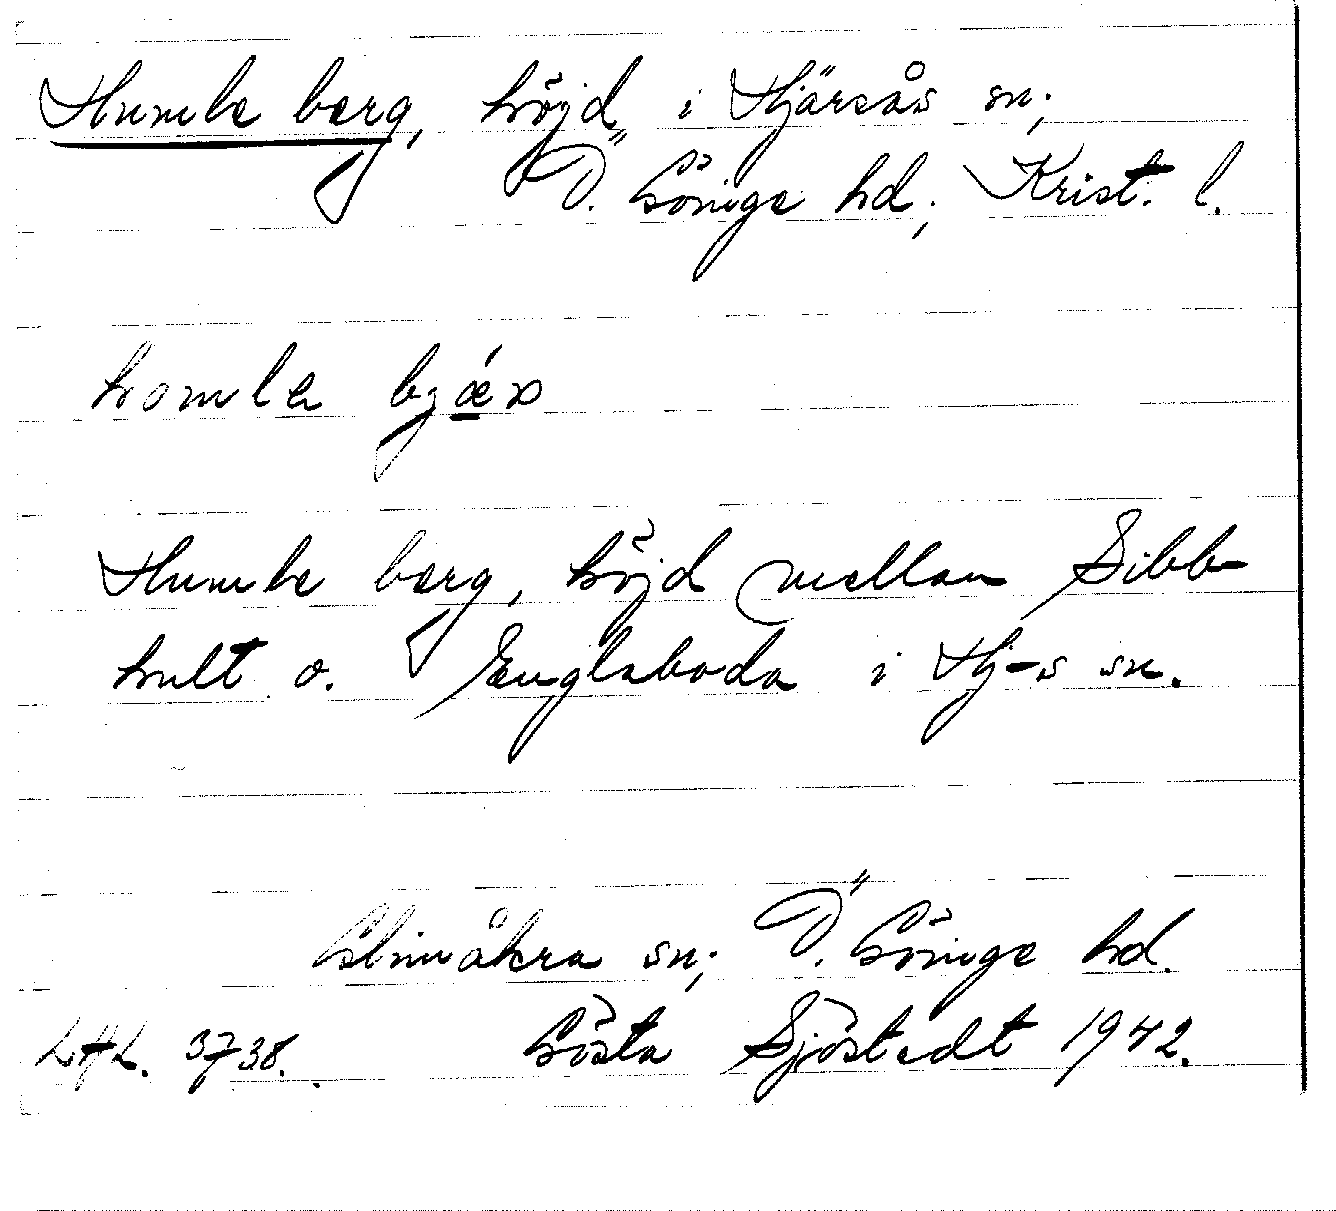 Humle berg, höjd i Hjärsås sn;
Ö. Göinge hd; Krist. l.
Humle berg, höjd mellan Sibb-
hult o. Englaboda i Hj-s sn.
Glimåkra sn; Ö. Göinge hd.
LAL. 3738. Gösta Sjöstedt 1942.